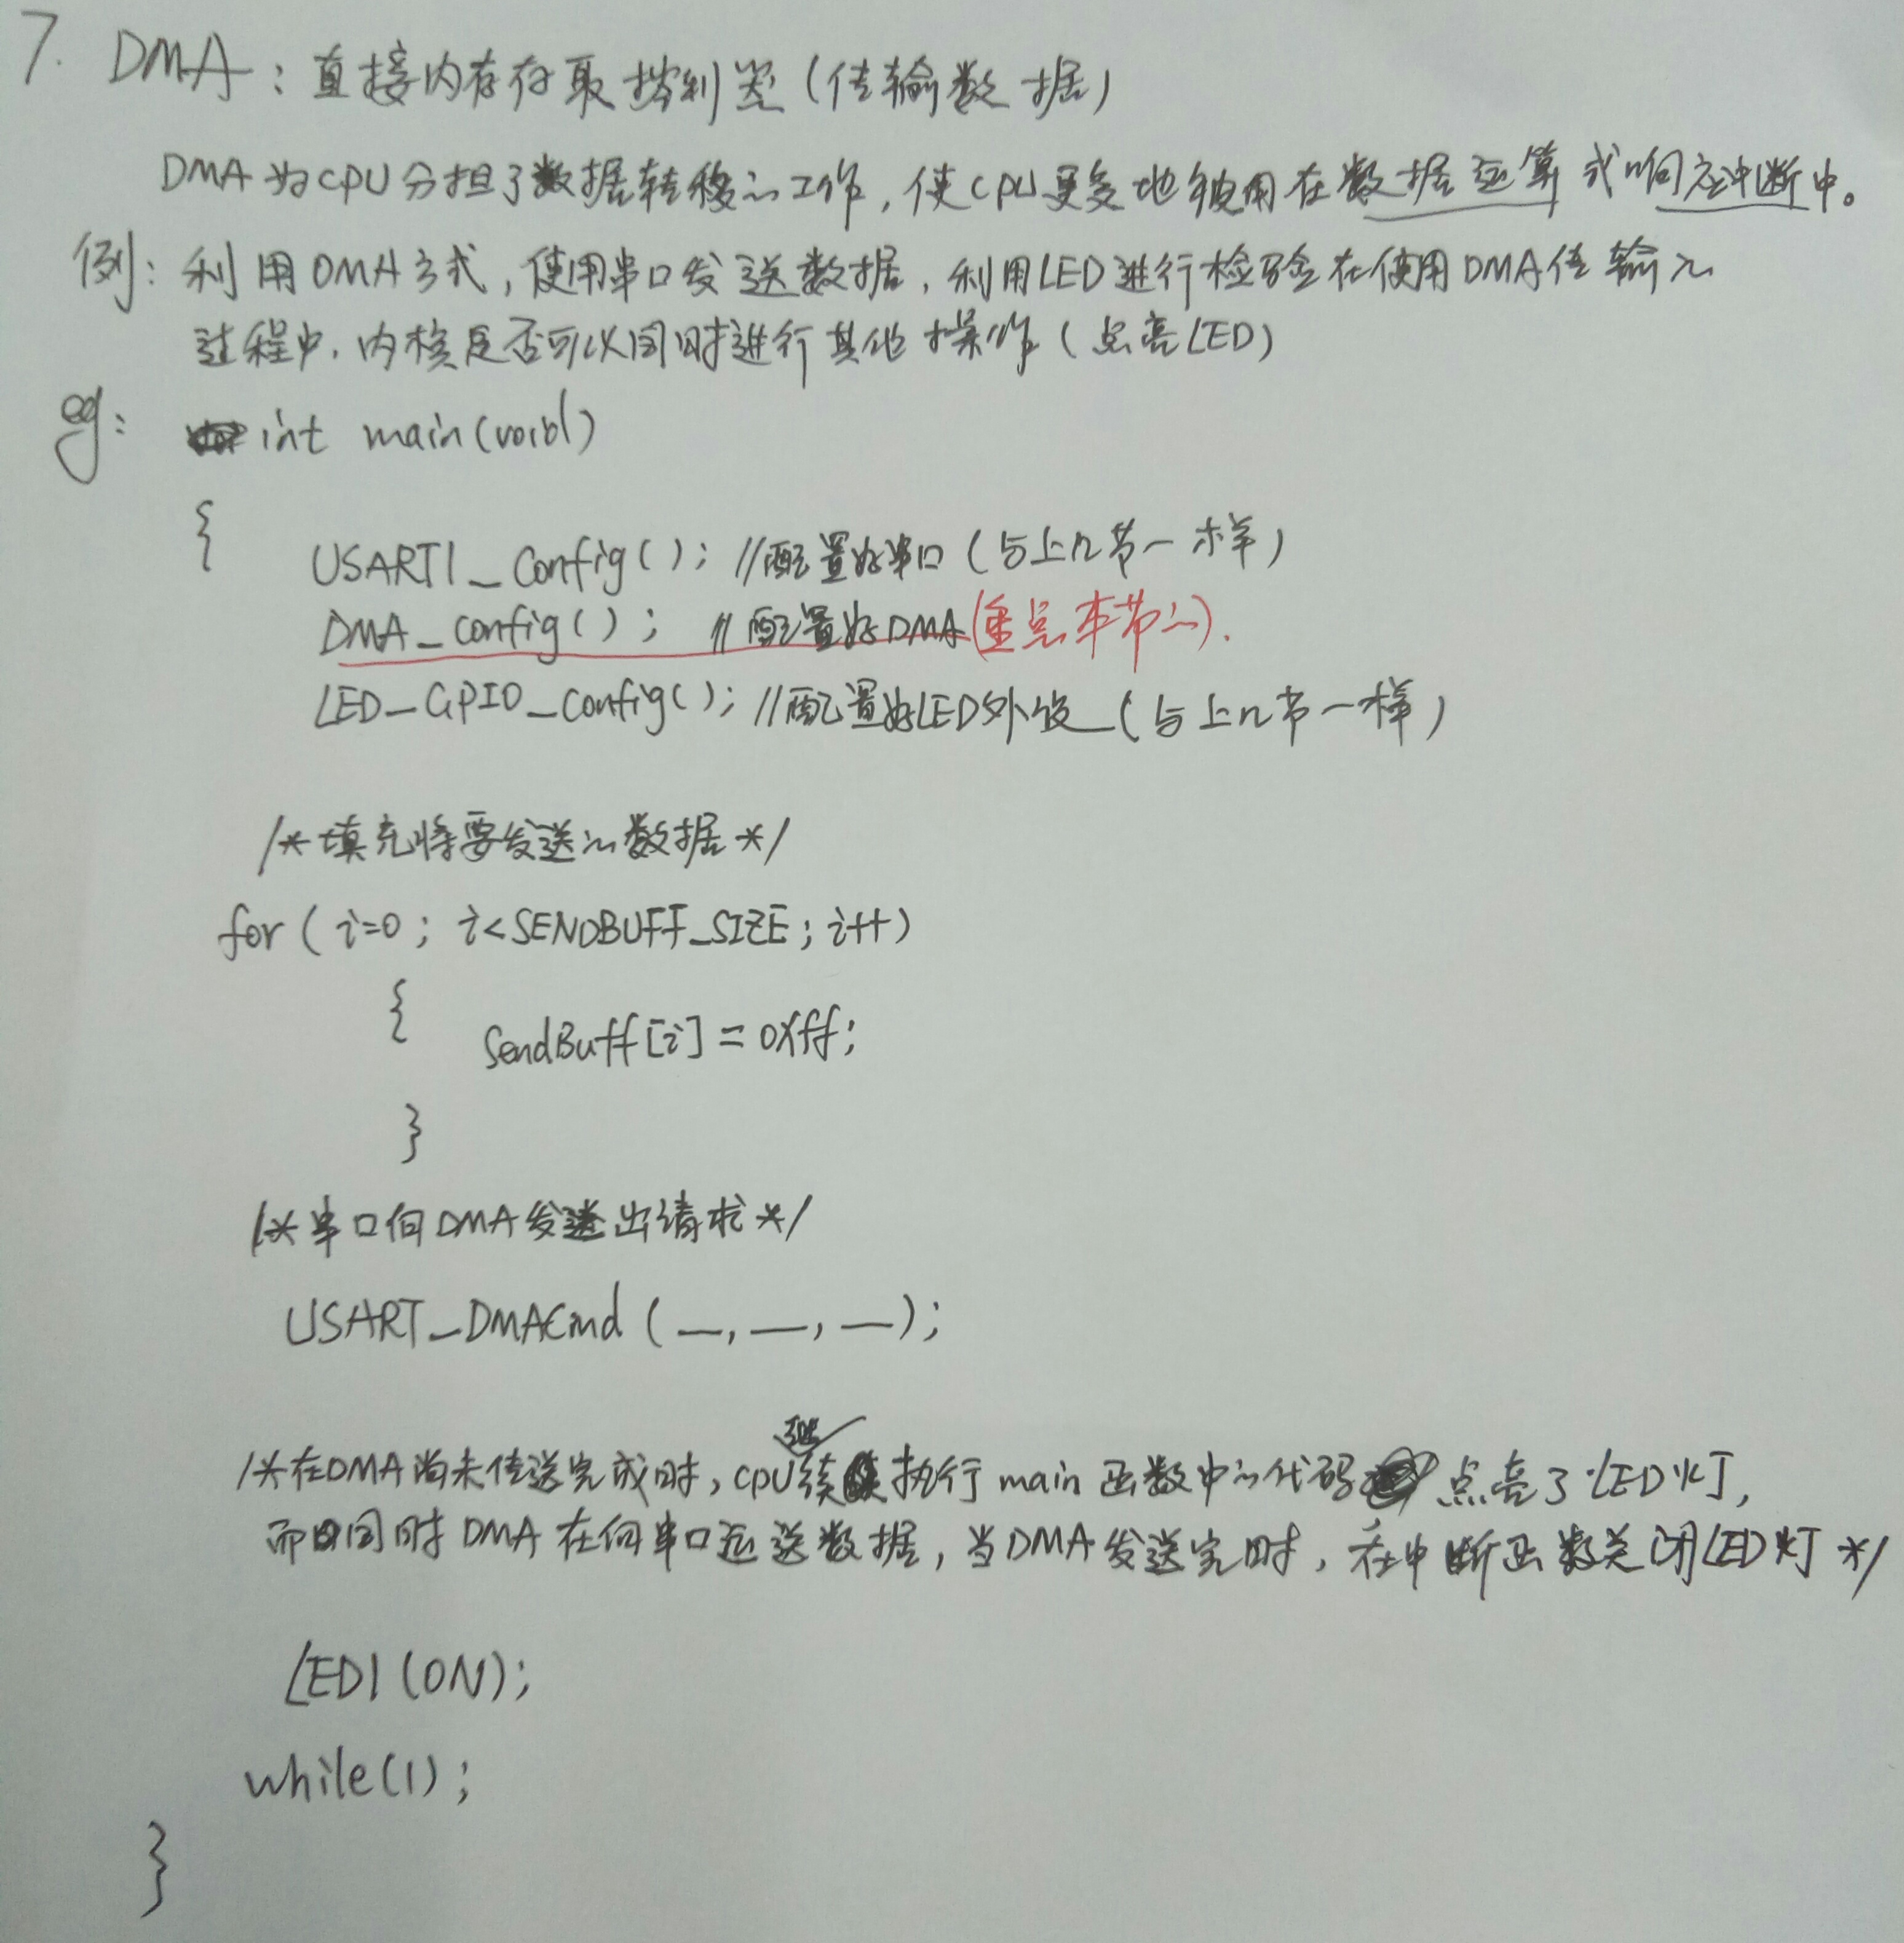 7. DMA：直接内存存取控制器（传输数据）
DMA为CPU分担了数据转移的工作，使CPU更多地被用在数据运算或响应中断中。
例：利用DMA方式，使用串口发送数据，利用LED进行检验在使用DMA传输的
过程中，内核是否可以同时进行其他操作（点亮LED）
eg： int main(void)
{
USART1_Config(); //配置好串口（与上几节一样）
DMA_config(); //配置好DMA(重点本节的).
LED_GPIO_config(); //配置好LED外设（与上几节一样）
/*填充将要发送的数据*/
for( i=0; i<SENDBUFF_SIZE; i++)
{
SendBuff[i] = 0xff;
}
/*串口向DMA发送出请求*/
USART_DMACmd(—,—,—);
/*在DMA尚未传送完成时，CPU继续执行main函数中的代码点亮了LED灯，
而同时DMA在向串口运送数据，当DMA发送完时，在中断函数关闭LED灯*/
LED1(ON);
while(1);
}